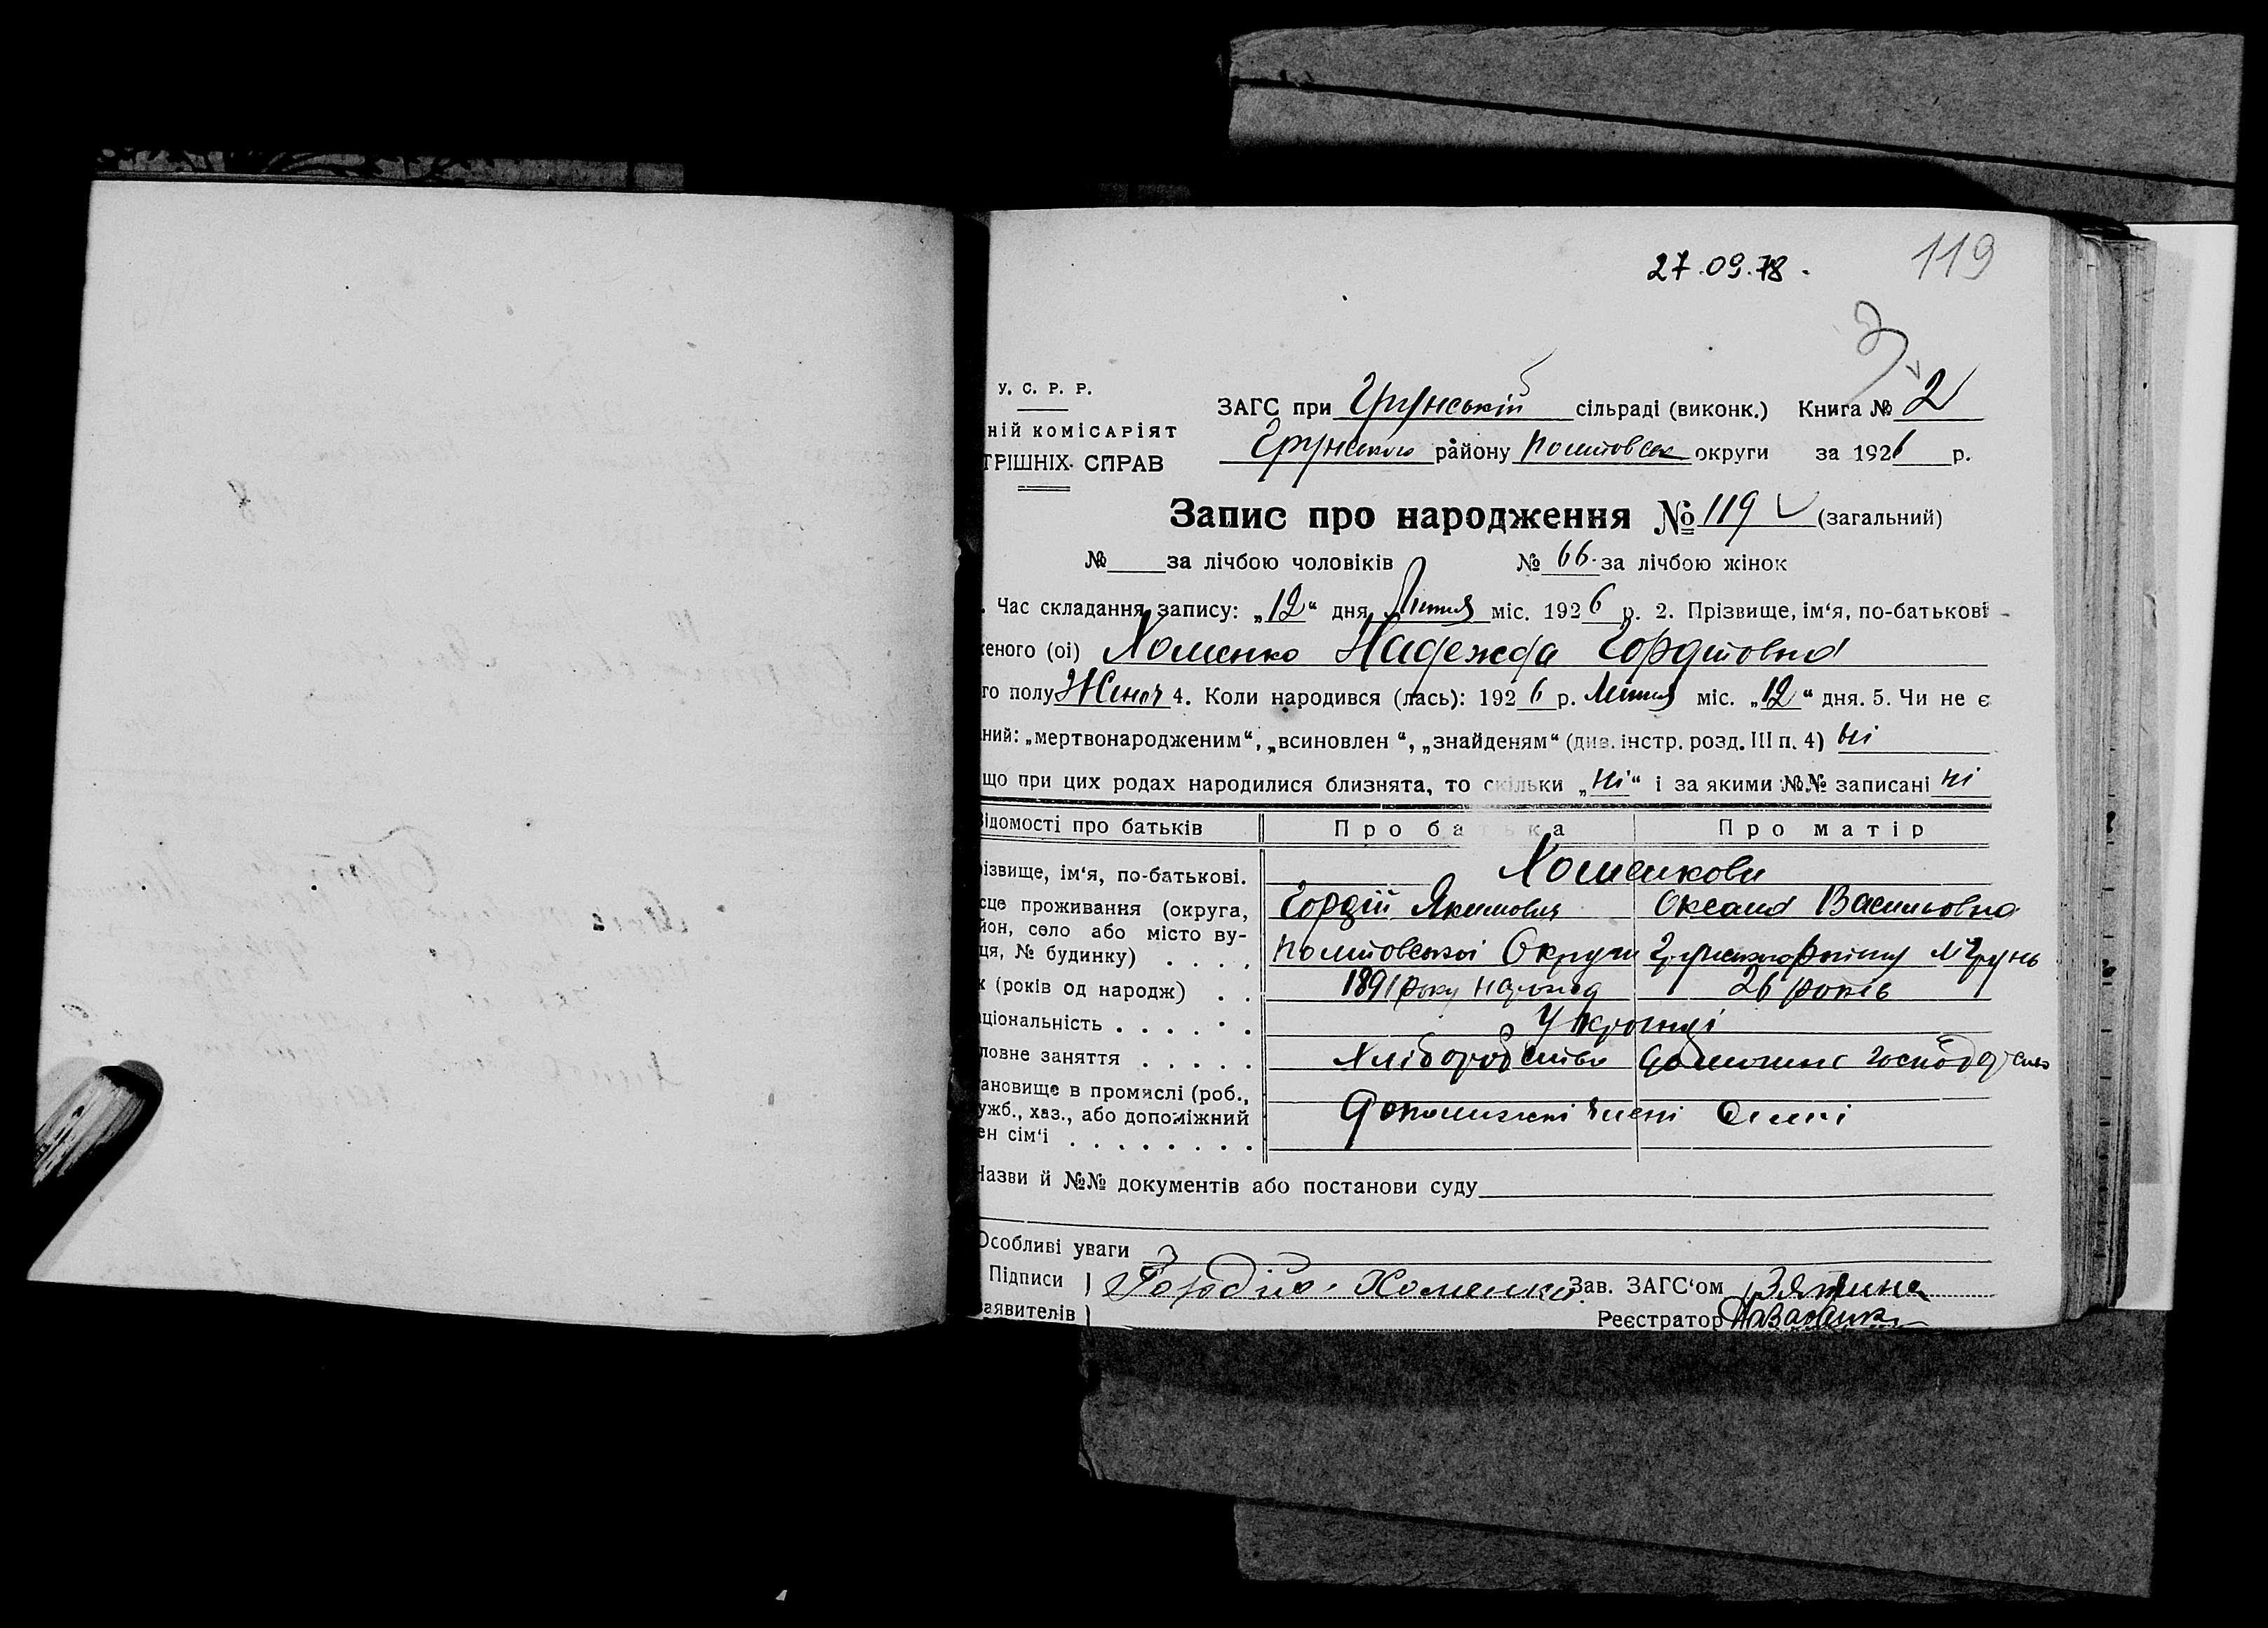 27.09.78.
119
У. С. Р. Р.
ній комісаріят
трішніх справ
ЗАГС при Грунській сільраді (виконк.) Книга № 2
Грунського району Полтовськ округи за 1926 р.
Запис про народження № 119 (загальний)
№ за лічбою чоловіків № 66 за лічбою жінок
. Час складання запису: „12“ дня Липня міс. 1926 р. 2. Прізвище, ім‘я, по-батькові
еного (ої) Хоменко Надежда Гордіївна
го полу Жіноч 4. Коли народився (лась): 1926 р. Липня міс. „12“ дня. 5. Чи не є
ний: „мертвонародженим“, „всиновлен “, „знайденям“ (див. інстр. розд. III п. 4) ні
що при цих родах народилися близнята, то скільки „ні“ і за якими №№ записані ні
ідомості про батьків Про батька Про матір
різвище, ім‘я, по-батькові. Хоменкови
сце проживання (округа, Гордій Якимович Оксана Васильовна
йон, село або місто ву-
ця, № будинку) . . . . Полтовської Округи Грунського району м Грунь
к (років од народж) . . 1891 року 26 років
ціональність . . . . . . Українці
ловне заняття . . . . . Хліборобство домашнє господарство
ановище в промислі (роб.,
ужб., хаз., або допоміжний Допоміжні члени Сімї
ен сім‘ї . . . . . . . .
Назви й №№ документів або постанови суду
Особливі уваги
Підписи Гордій Хоменко Зав. ЗАГС‘ом
аявителів Реєстратор